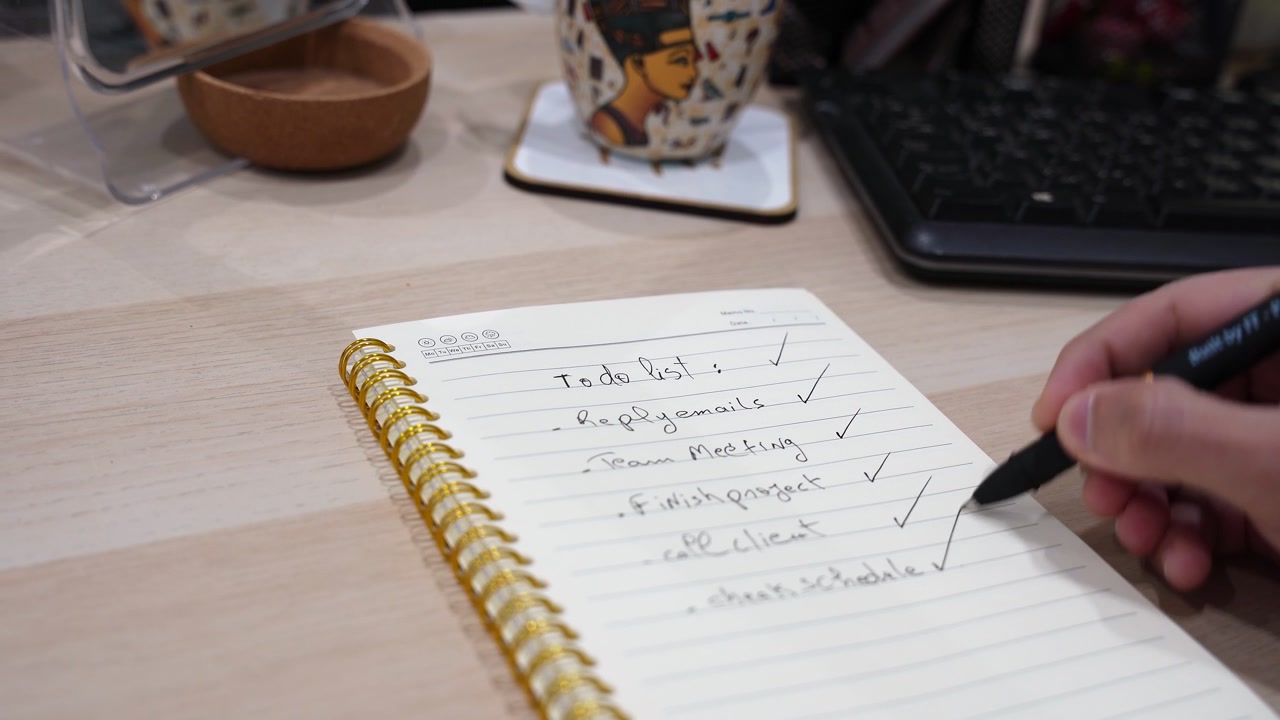 Memo No
Date
Mo Tu We Th Fr Sa Su
To do list :
- Reply emails
- Team Meeting
. Finish project
- call client
. check schedule
Built by IT